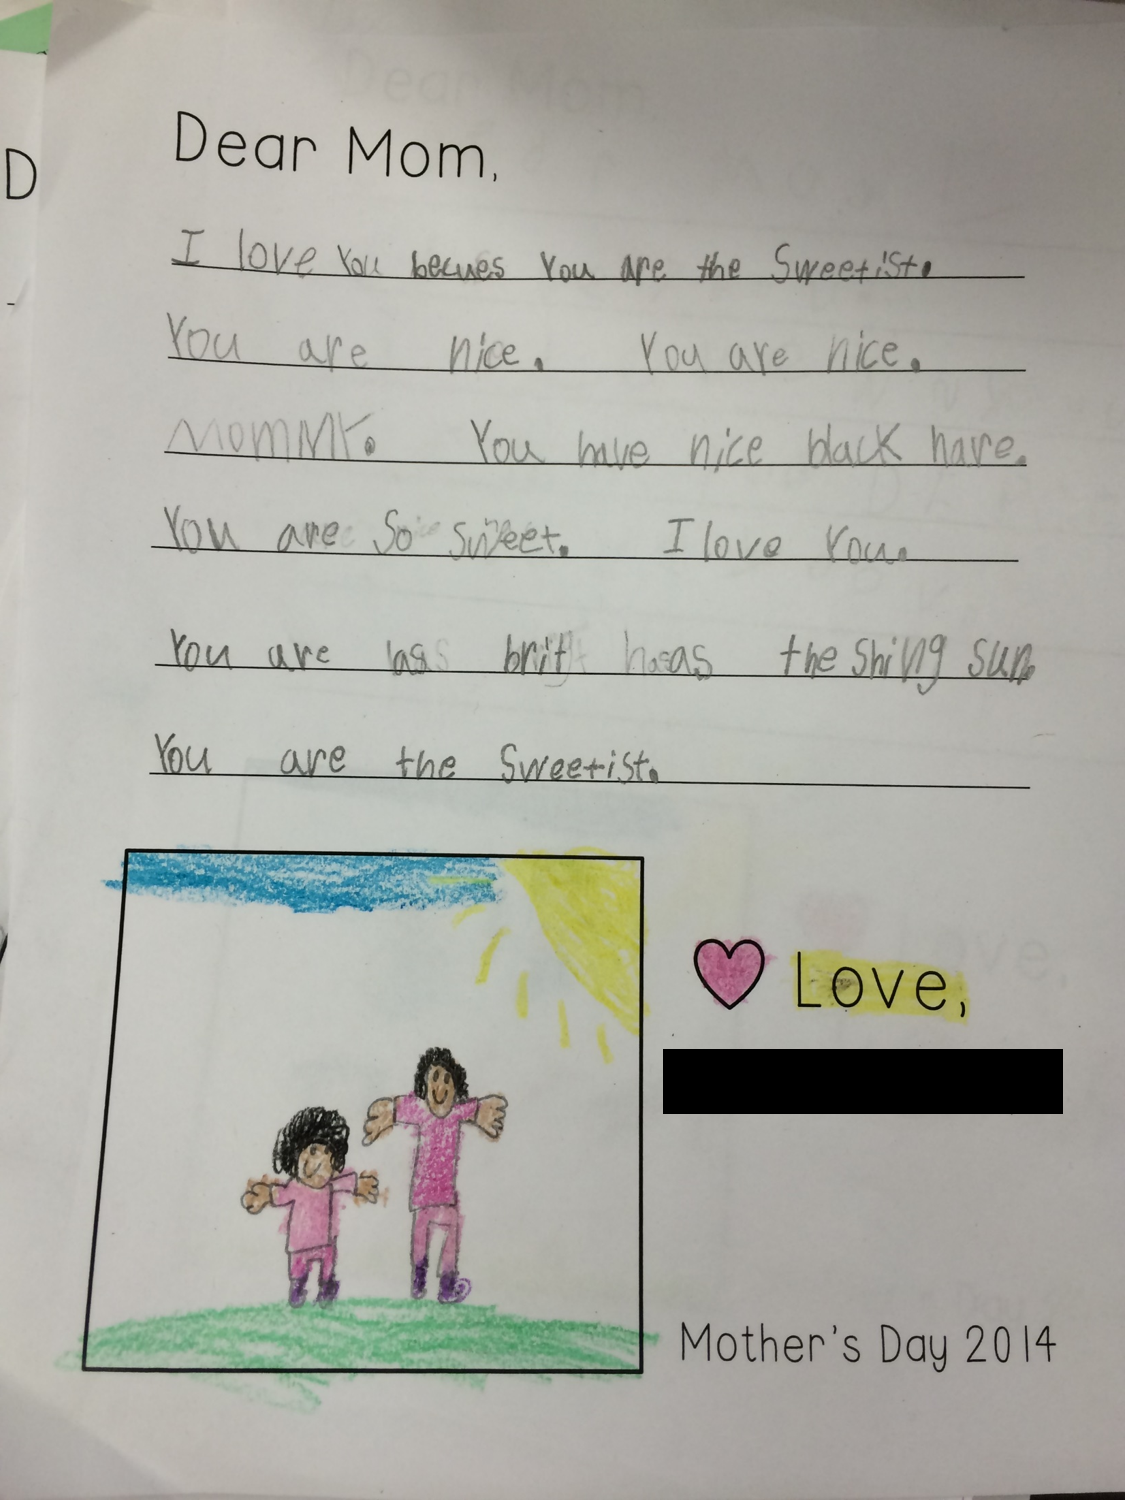 Dear Mom,
I love you becues You are the Sweetist.
You are nice. You are nice.
MOMMY. You have nice black hare.
You are So sweet. I love You.
You are as brit as the Shing sun.
You are the Sweetist.
D
Love,
Mother's Day 2014